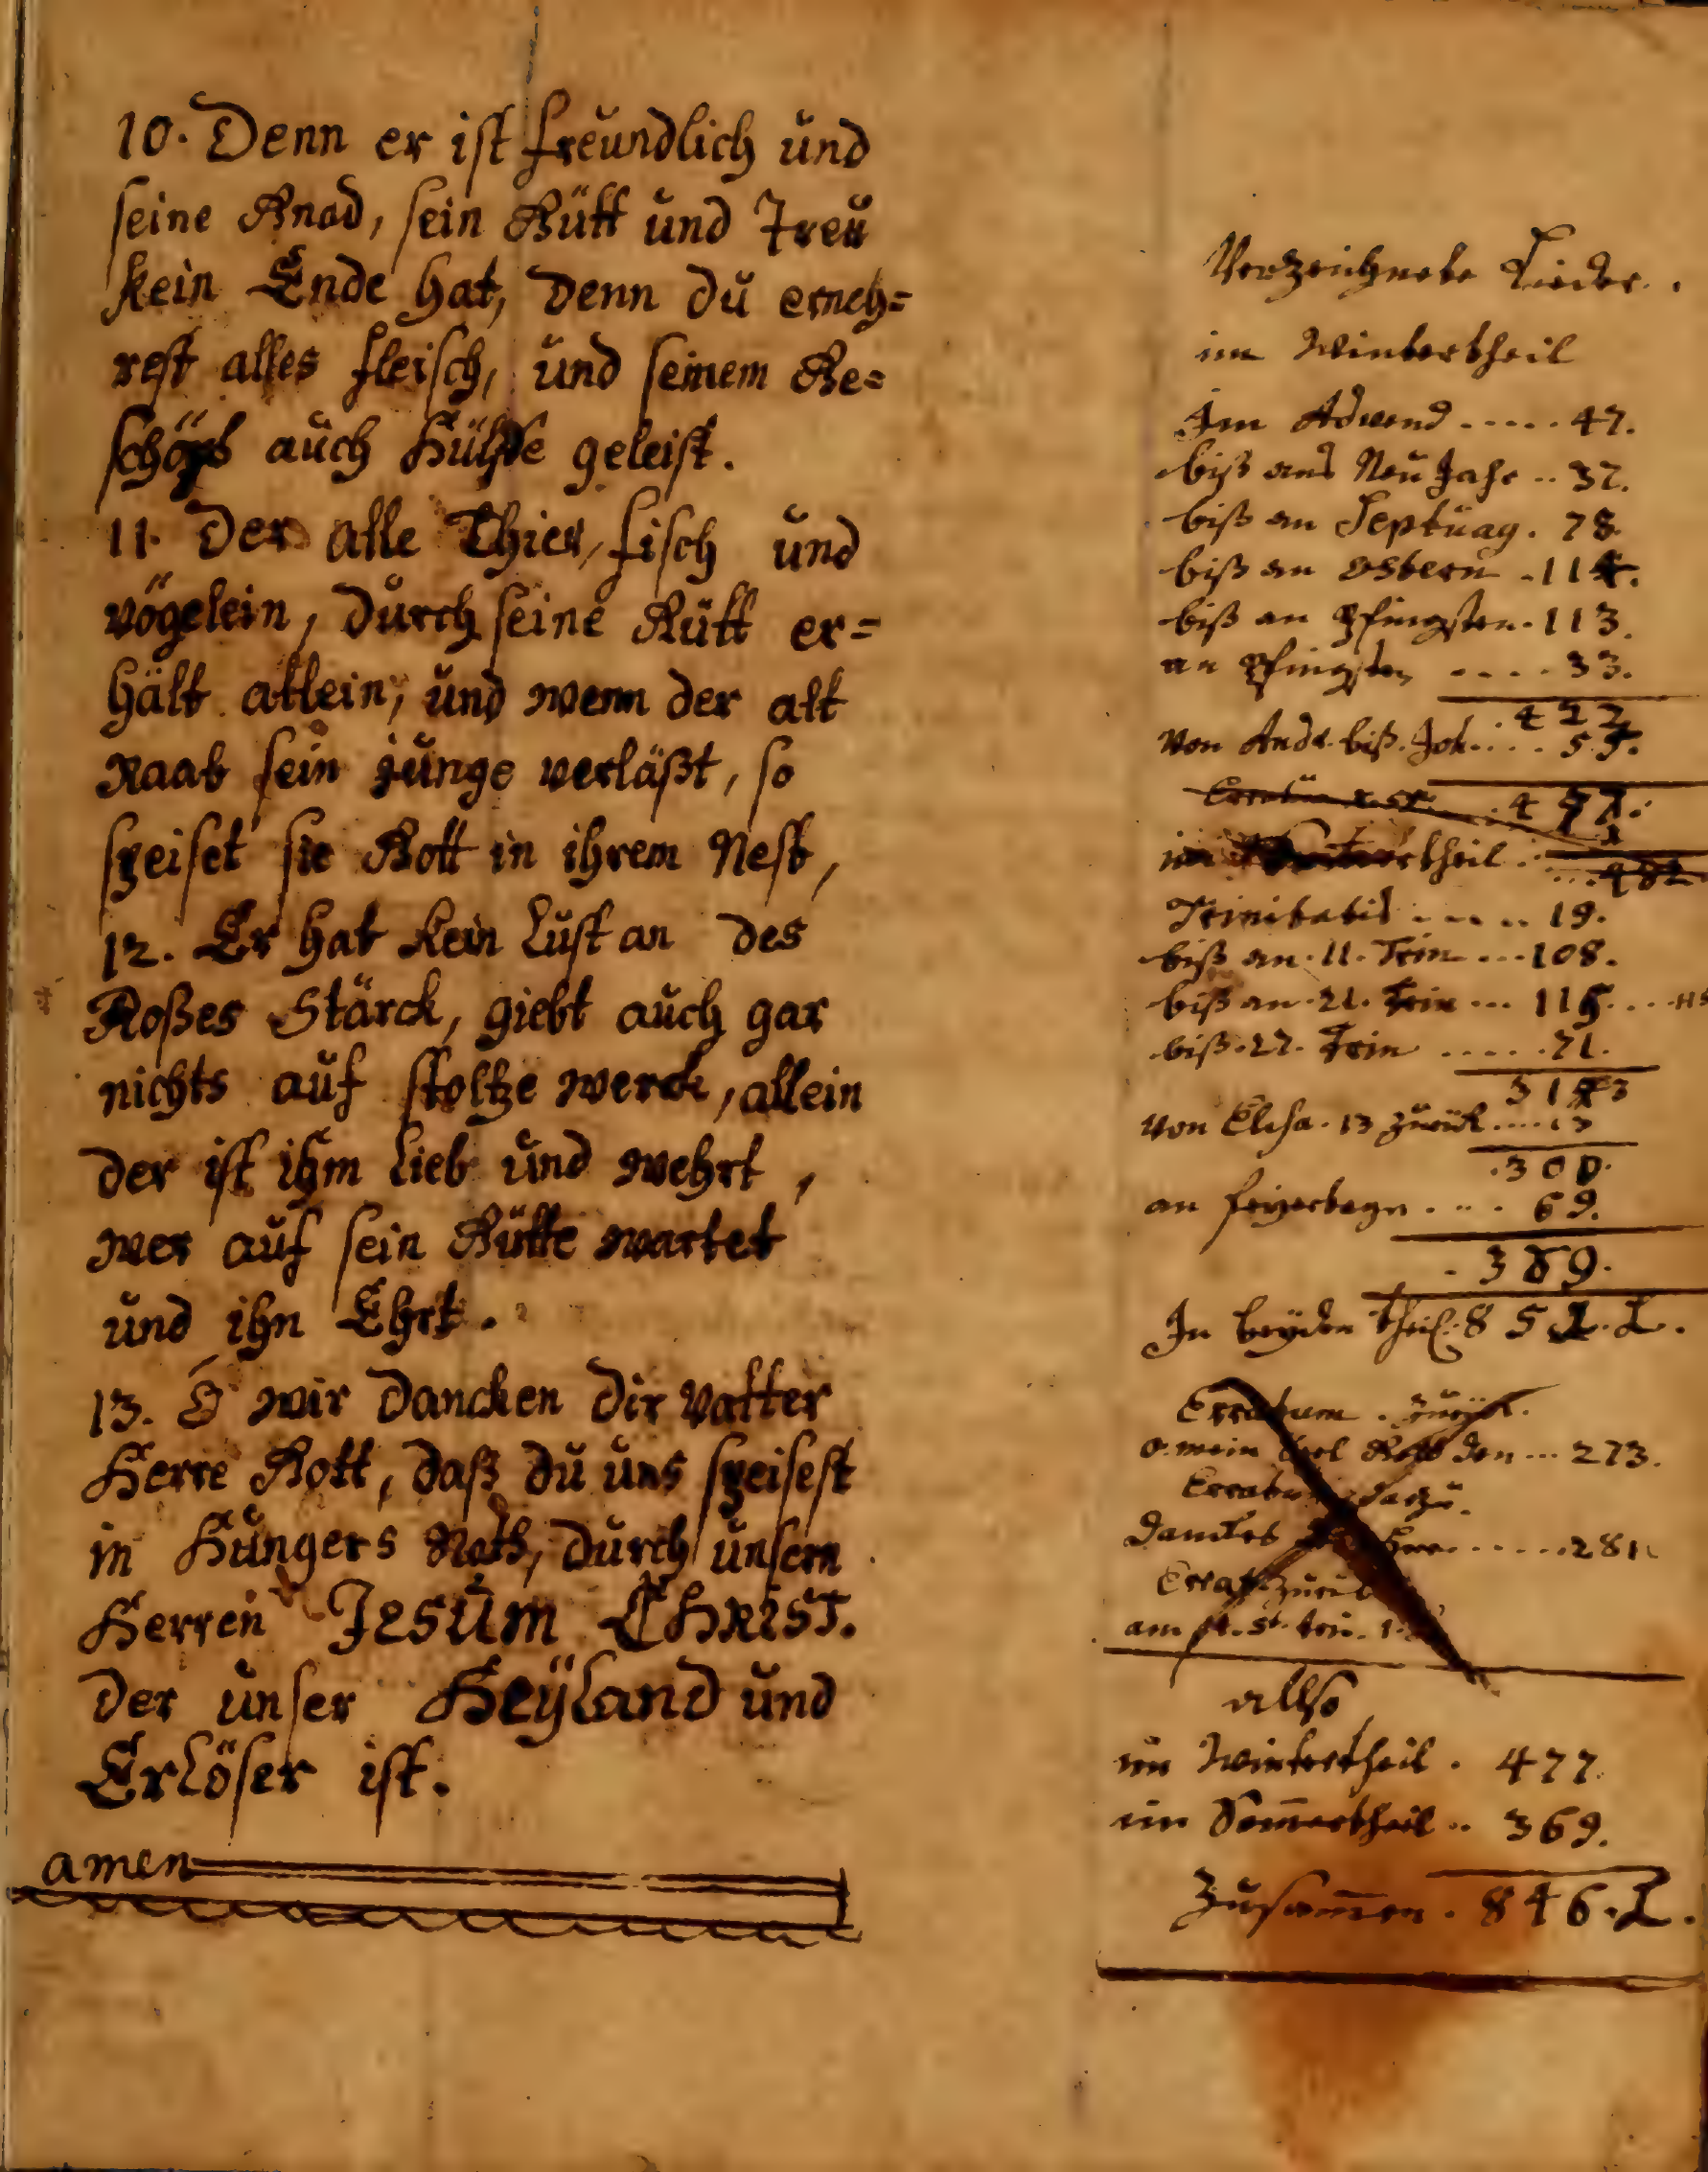 10. Denn er ist freundlich und
seine Gnad, sein Gütt und Treu
kein Ende hat, Denn du erneh=
rest alles fleisch, und seinem Ge=
schöpf auch Hülffe geleist.
11. Der alle Thier, fisch und
vögelein, durch seine Gütt er=
hält allein, und wenn der alt
Raab sein junge verläßt, so
speiset sie Gott in ihrem Nest,
12. Er hat kein Lust an des
Roßes Stärck, giebt auch gar
nichts auf stoltze werck, allein
der ist ihm Lieb und wehrt,
wer auf sein Gütte wartet
und ihn Ehrt.
13. O wir dancken dir vatter
Herre Gott, daß du uns speisest
in Hungers Noth, durch unsern
Herren Jesum Christ.
Der unser Heÿland und
Erlöser ist.
amen
Verzeichnete Lieder.
im Wintertheil
Im Advend ..... 47.
biß ans Neu Jahr .. 37.
biß an Septuag. 78.
biß an Ostern . 114.
biß an Pfingsten . 113.
an Pfingsten .... 33.
422
von Andr. biß. Joh. ... 55.
477.
im theil
Trinitatis ..... 19.
biß an 11. Trin ... 108.
biß an 21. Trin ... 115.
biß 27. Trin ..... 71.
313
von Elisa. 13 zurück .... 13
300.
an feyertagen .... 69.
369.
In beyden theil. 8 5 L.
Erratum . zurück.
o. mein den ... 273.
dazu.
281
zurück
am
allso
im Wintertheil . 477.
im Som̄ertheil .. 369.
Zusam̄en . 846. L.